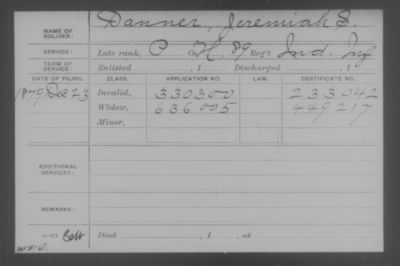 NAME OF SOLDIER: Danner, Jeremiah S.
SERVICE: Late rank, C Co. 89 Reg't Ind. Inf
TERM OF SERVICE: Enlisted , 1 Discharged , 1
DATE OF FILING. CLASS. APPLICATION NO. LAW. CERTIFICATE NO.
1879 Dec 23 Invalid, 330300 233042
Widow, 636005 449217
Minor,
ADDITIONAL SERVICES:
REMARKS:
Died , 1 , at